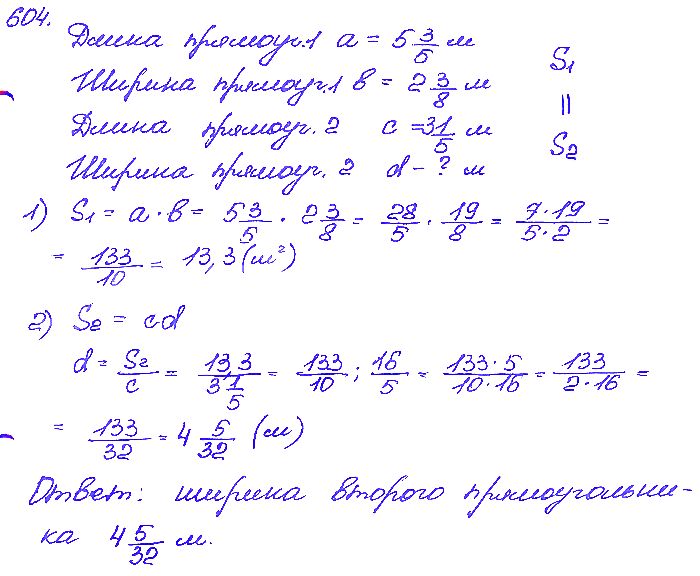 604.
Длина прямоуг.1 a = 5 3/5 м
Ширина прямоуг.1 b = 2 3/8 м
Длина прямоуг. 2 c = 3 1/5 м
Ширина прямоуг. 2 d - ? м
S₁
=
S₂
1) S₁ = a · b = 5 3/5 · 2 3/8 = 28/5 · 19/8 = 7·19/5·2 =
= 133/10 = 13,3 (м²)
2) S₂ = cd
d = S₂/c = 13,3/3 1/5 = 133/10 ; 16/5 = 133·5/10·16 = 133/2·16 =
= 133/32 = 4 5/32 (м)
Ответ: ширина второго прямоугольни-
ка 4 5/32 м.